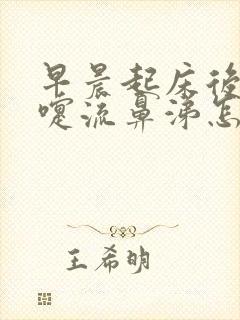 早晨起床後
嚏流鼻涕怎
王希明